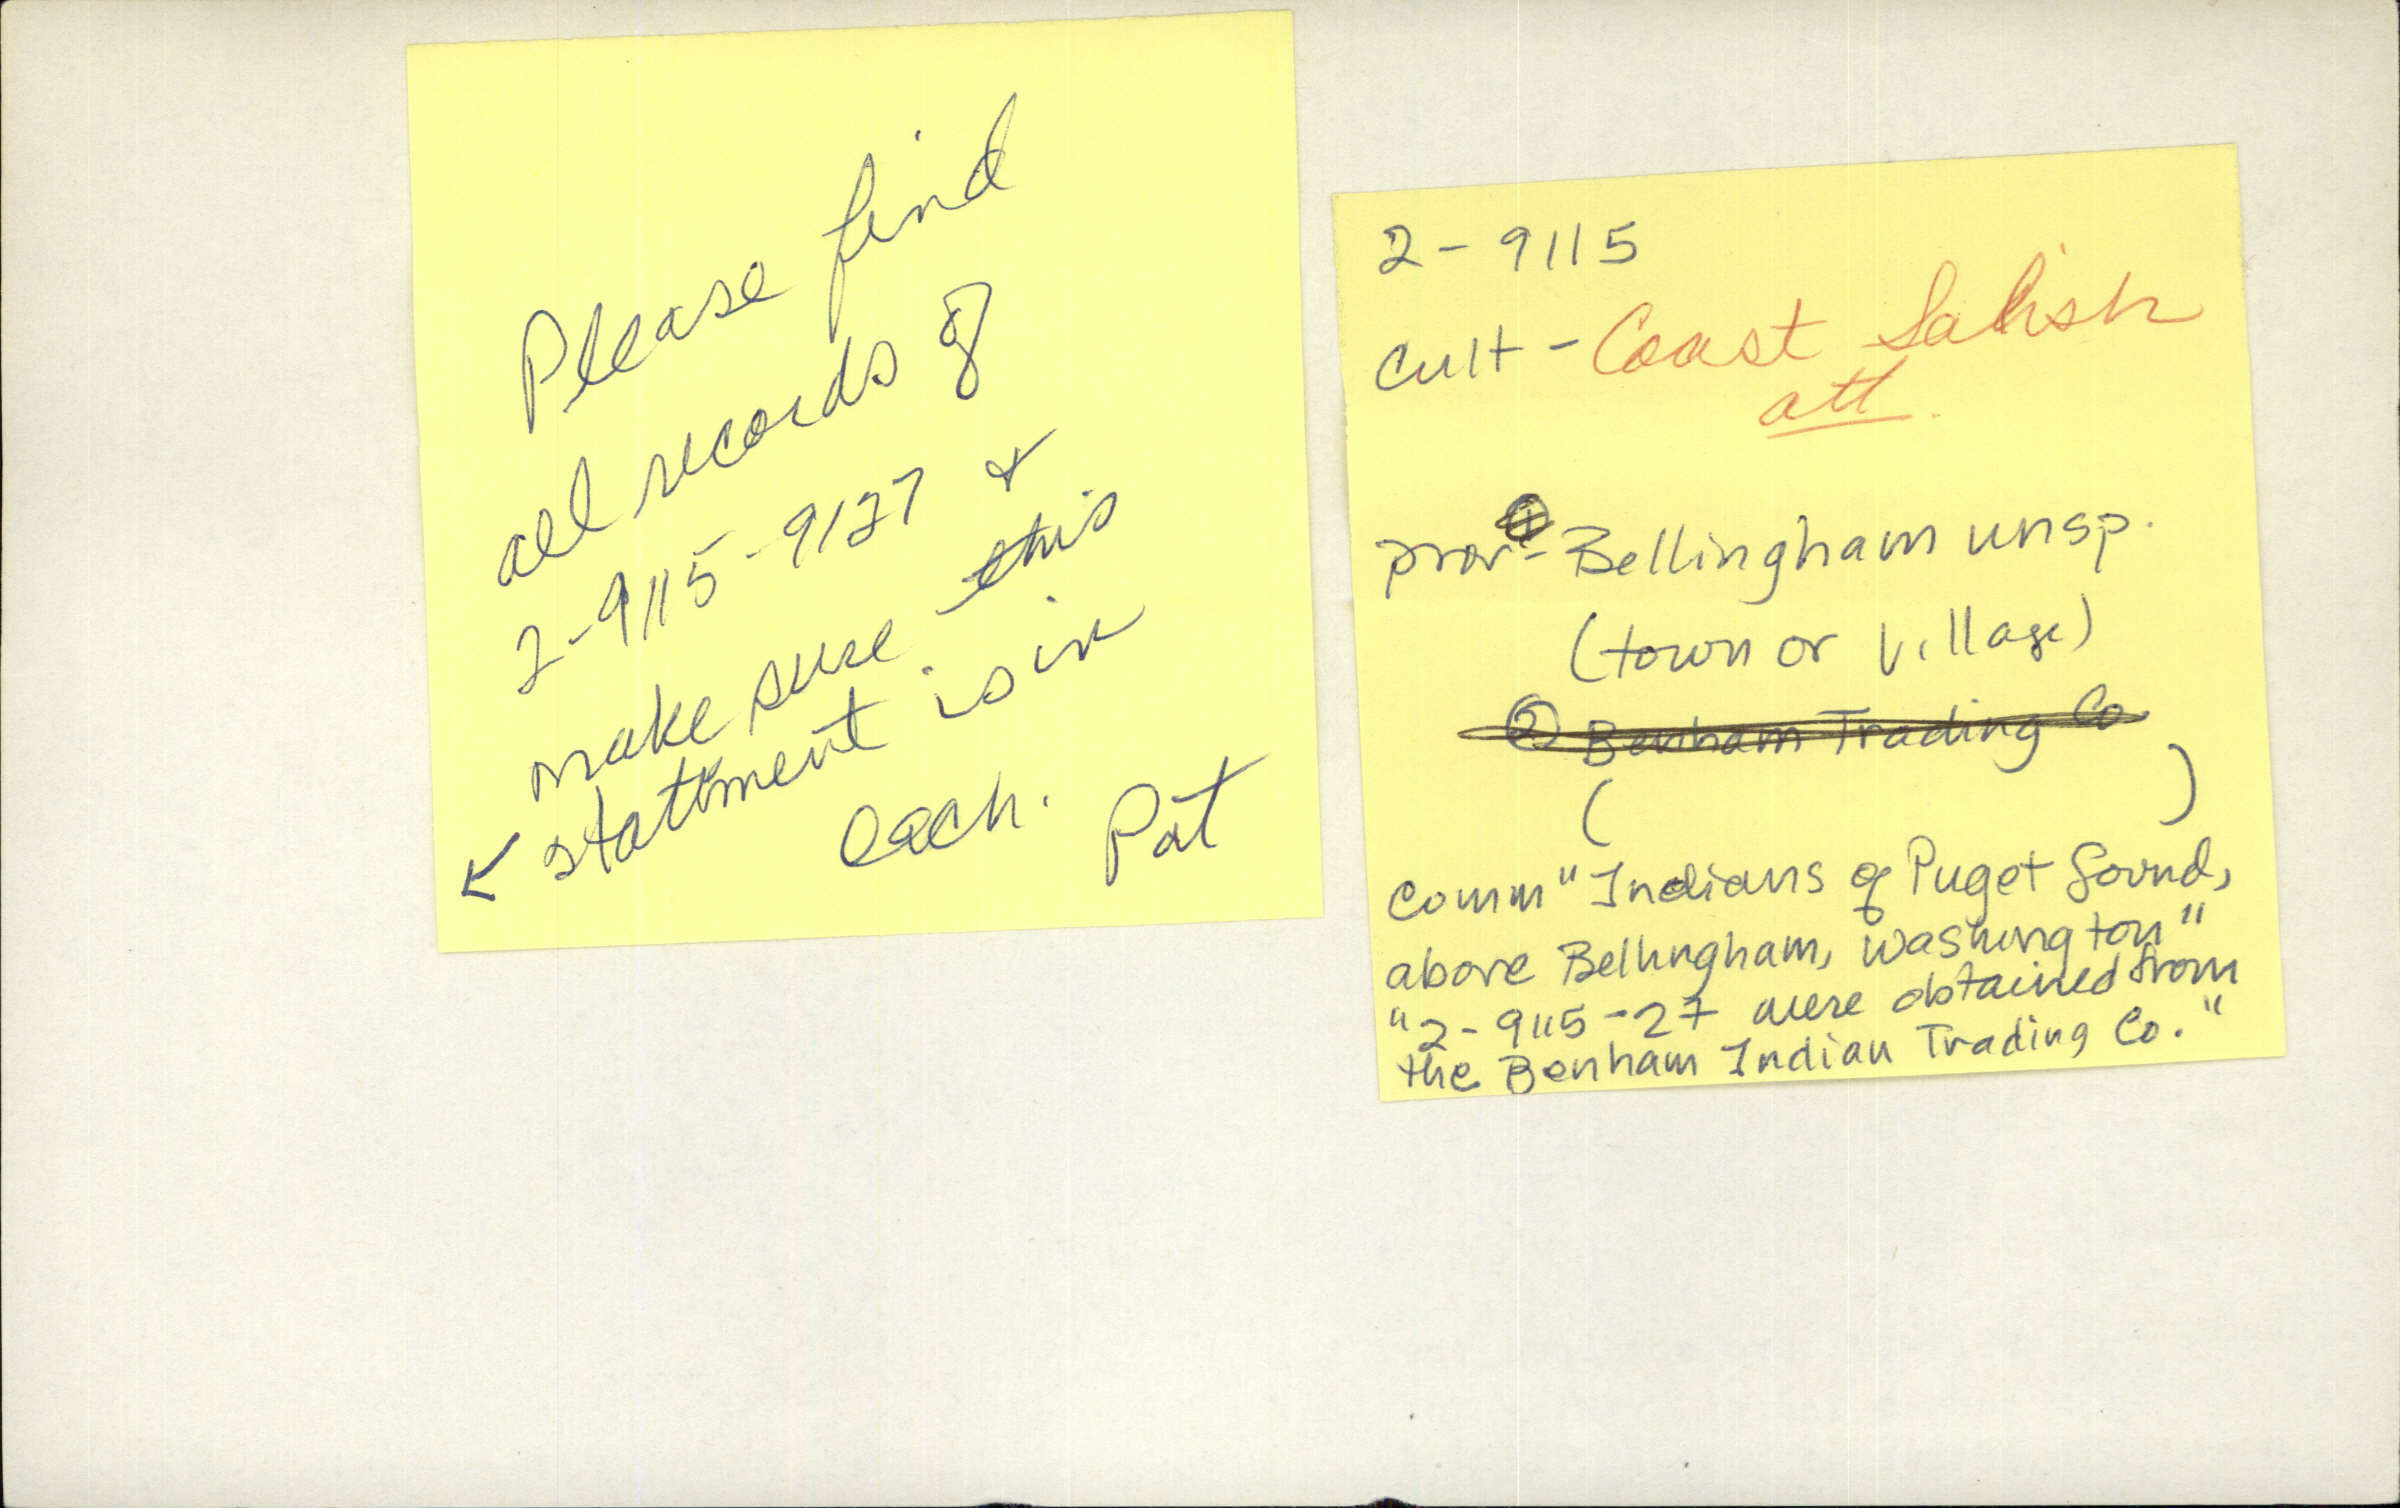 Please find
all records of
2-9115-9127 &
make sure this
statement is in
each.
Pat
2-9115
Cult - Coast Salish
att.
prov - ① Bellingham unsp.
(town or village)
② Benham Trading Co
( )
Comm "Indians of Puget Sound,
above Bellingham, Washington"
"2-9115-27 were obtained from
the Benham Indian Trading Co."